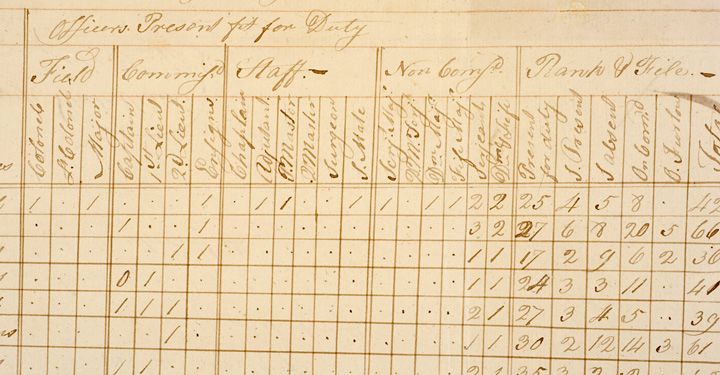 Officers Present fit for Duty
Field Commiss.d Staff.— Non Com.d Rank & File.—
Colonels Lt Colonels Major Captains 1st Lieut 2.d Lieut Ensigns Chaplain Adjutant P. Master Q. Master Surgeon S. Mate Serj.t Maj.r Q.M. Serj.t Dm Maj.r Fife Maj.r Serjeant Dm & Fifes Present for duty S. Present S absent On Com.d O. Furlow Total
1 . 1 . . . 1 . 1 1 . . 1 1 . 1 1 2 2 25 4 5 8 . 42
. . . 1 . . 1 . . . . . . . . . . 3 2 27 6 8 20 5 66
. . . . . 1 1 . . . . . . . . . . 1 1 17 2 9 6 2 36
. . . 0 1 . . . . . . . . . . . . 1 1 24 3 3 11 . 41
. . . 1 1 1 . . . . . . . . . . . 2 1 27 3 4 5 . . 39
. . . . . 1 . . . . . . . . . . . 1 1 30 2 12 14 3 61
. . . 1 1 . . . . . . . . . . . . 2 1 35 3